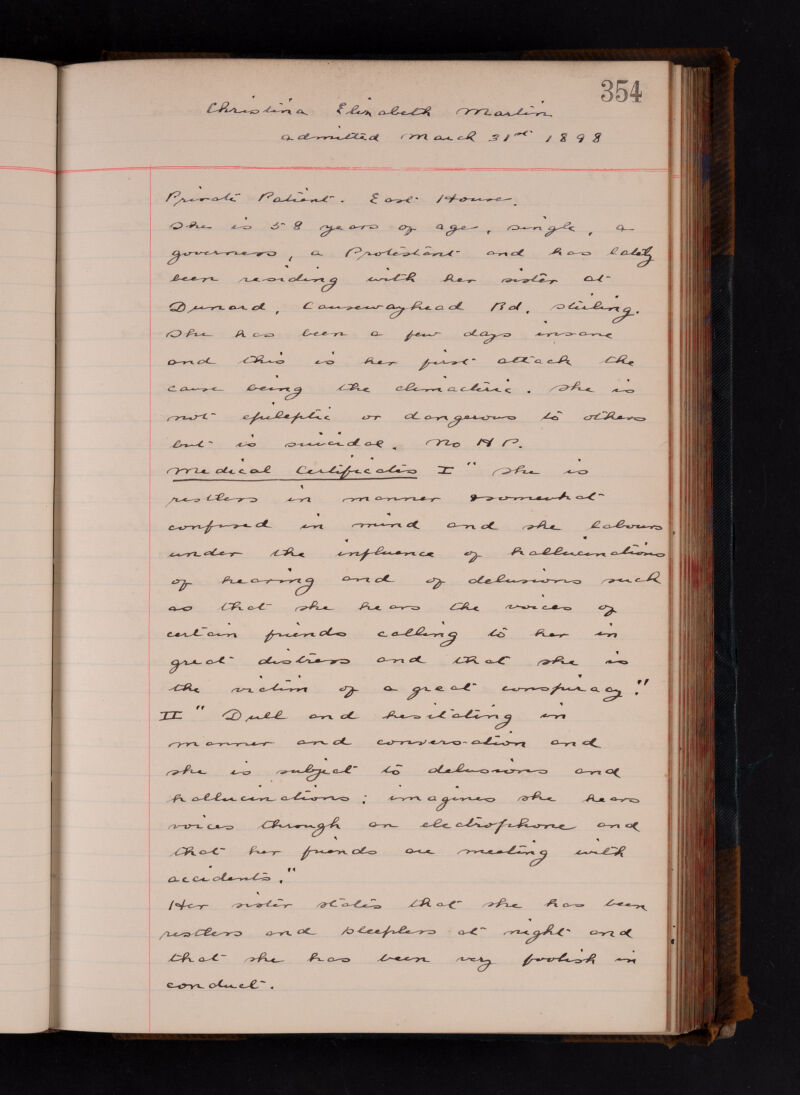 354
Christina Elizabeth Martin
admitted March 31st 1898
Private Patient. East House.
She is 58 years of age, single, a
governess, a Protestant and has lately
been residing with her sister at
Dunard, Causewayhead Rd, Stirling.
She has been a few days insane
and this is her first attack the
cause being the climacteric. She is
not epileptic or dangerous to others
but is suicidal. No H P.
Medical Certificates I " She is
restless in manner somewhat
confused in mind and she labours
under the influence of hallucinations
of hearing and of delusions such
as that she hears the voices of
certain friends calling to her in
great distress and that she is
the victim of a great conspiracy."
II " Dull and hesitating in
manner and conversation and
she is subject to delusions and
hallucinations; imagines she hears
voices through an electrophone and
that her friends are meeting with
accidents."
Her sister states that she has been
restless and sleepless at night and
that she has been very foolish in
conduct.